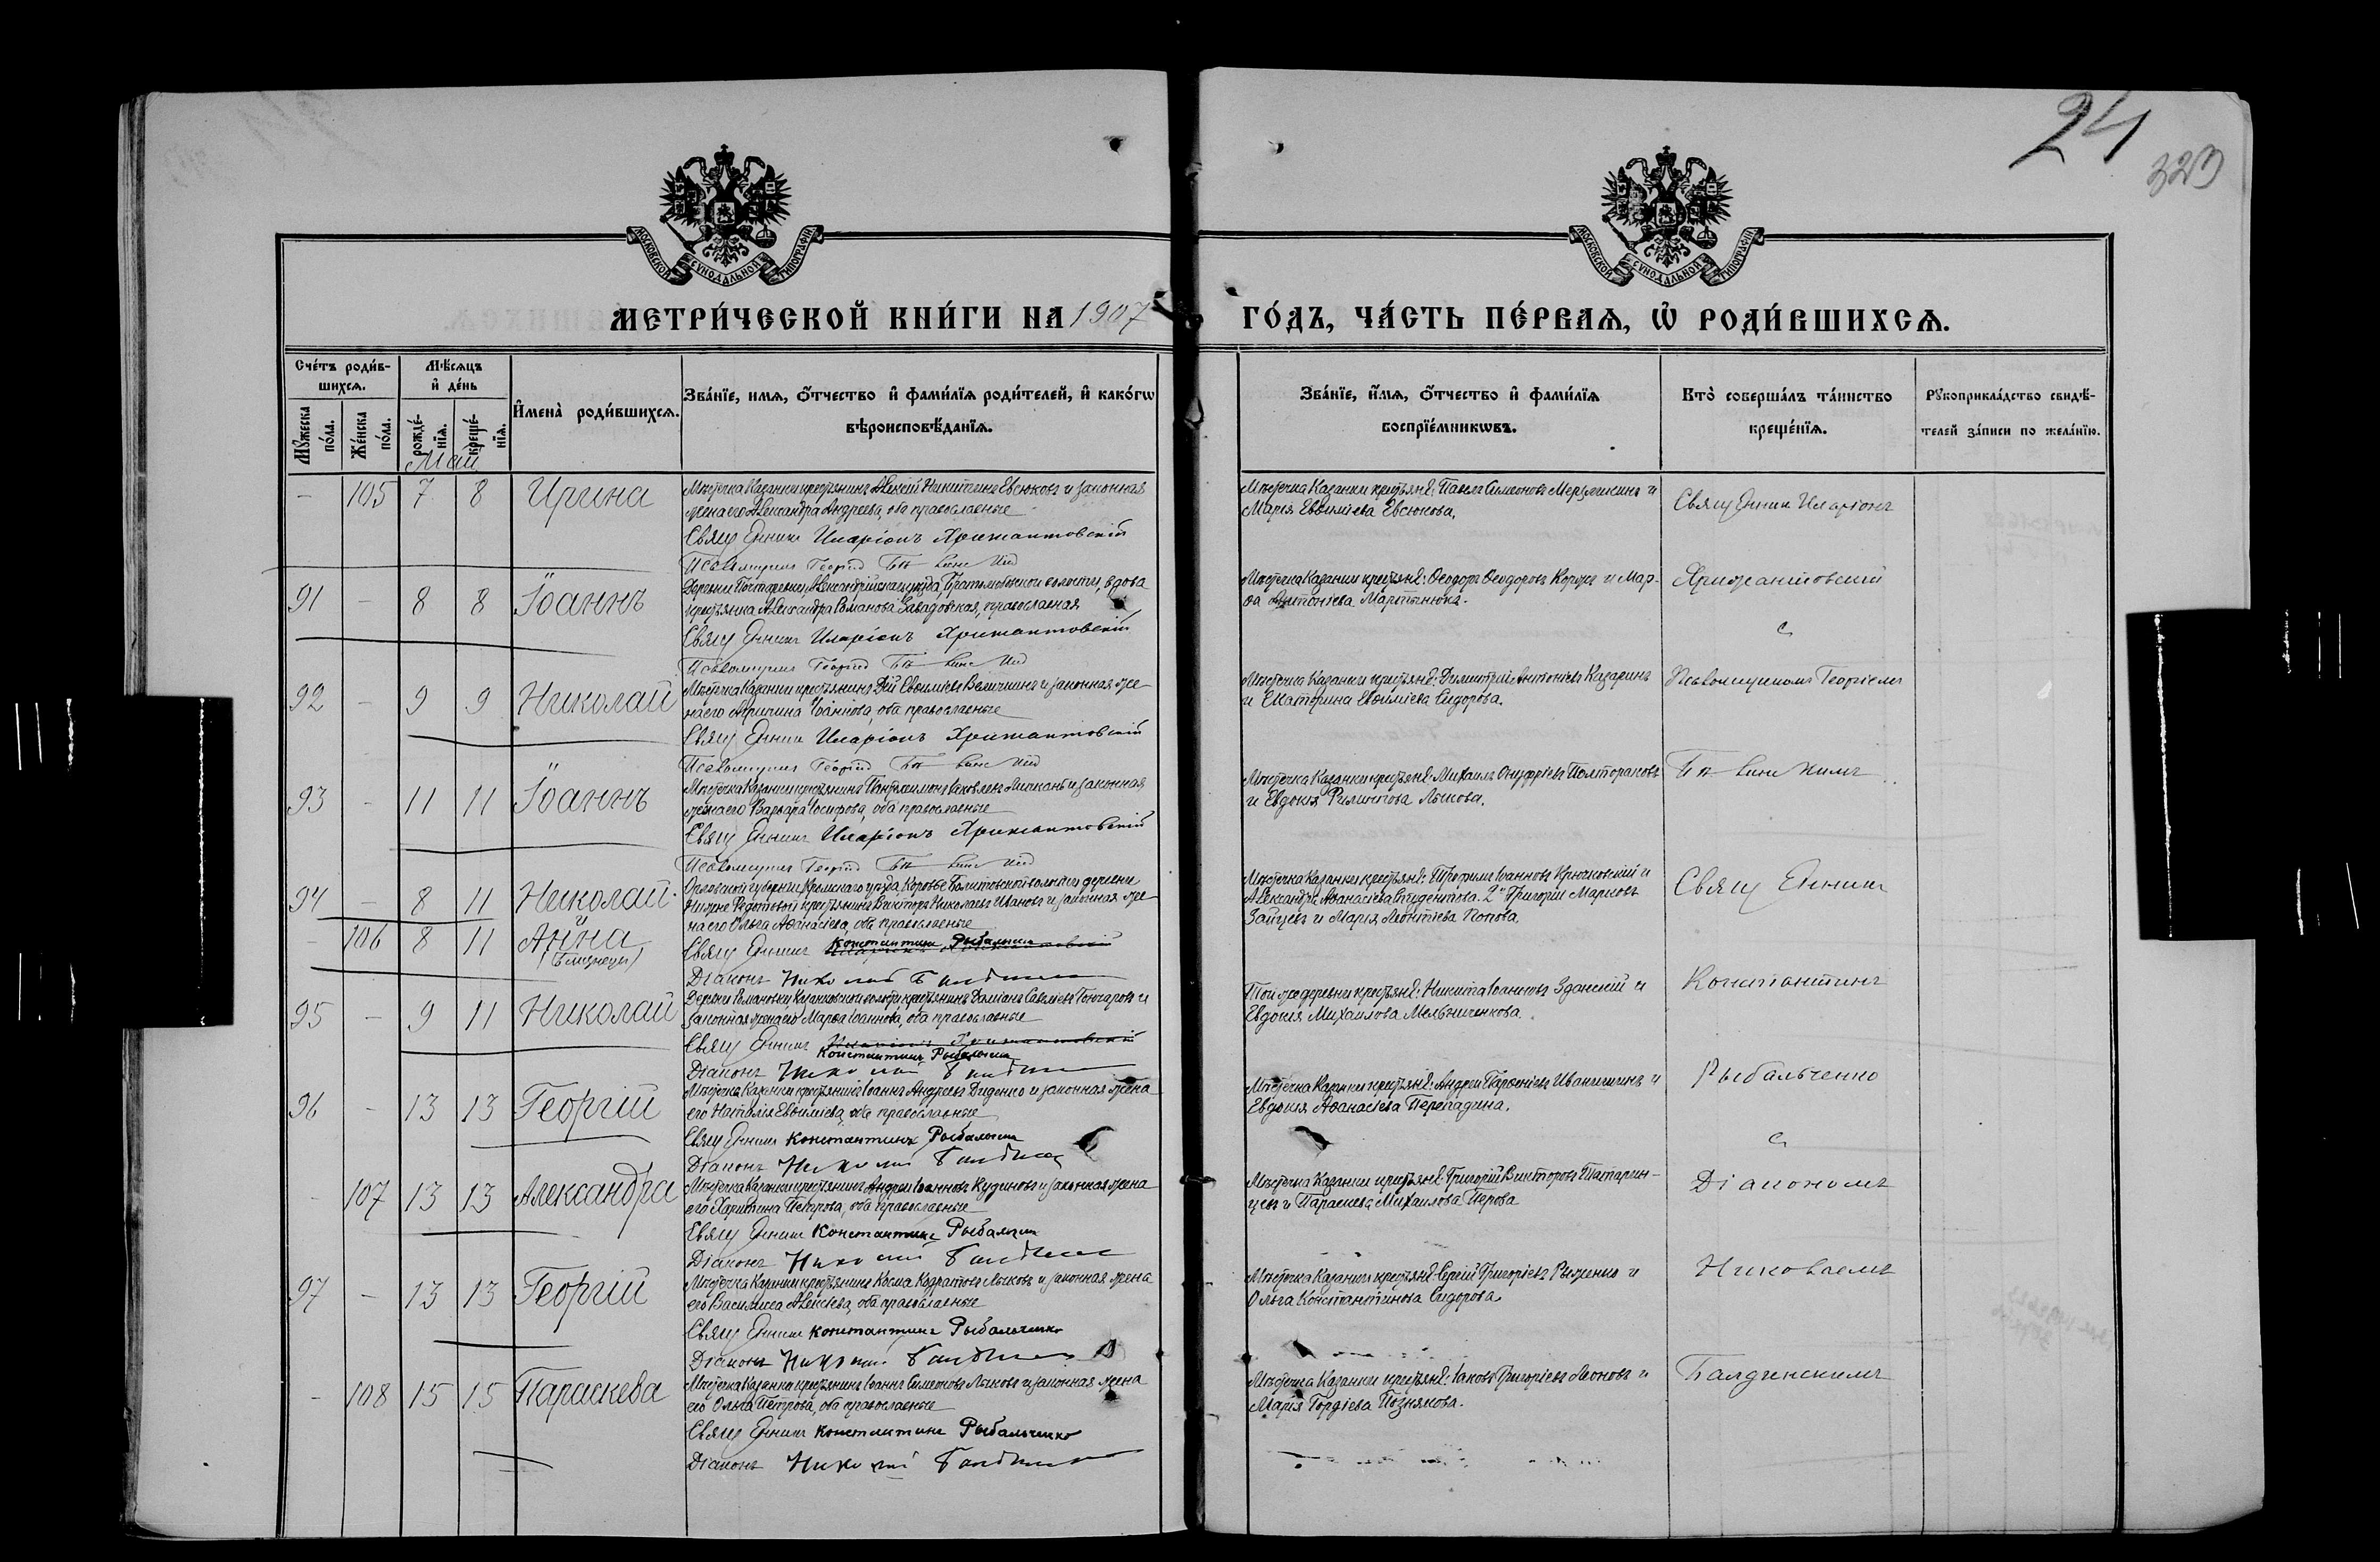 24
323
МОСКОВСКОЙ СѴНОДАЛЬНОЙ ТИПОГРАФІИ
МОСКОВСКОЙ СѴНОДАЛЬНОЙ ТИПОГРАФІИ
МЕТРИ́ЧЕСКОЙ КНИ́ГИ НА 1907
ГО́ДЪ, ЧА́СТЬ ПЕ́РВАѦ, Ѡ҆ РОДИ́ВШИХСѦ.
Сче́тъ роди́в-
шихсѧ.
Мꙋ́жеска
по́ла.
Же́нска
по́ла.
Мѣ́сѧцъ
и҆ де́нь
рожде́-
нїѧ.
креще́-
нїѧ.
Май
И҆мена̀ роди́вшихсѧ.
Зва́нїе, имѧ, ѻ҆́тчество и҆ фами́лїѧ роди́телей, и҆ како́гѡ
вѣроисповѣ́данїѧ.
Зва́нїе, и҆́мѧ, ѻ҆́тчество и҆ фами́лїѧ
воспрїе́мникѡвъ.
Кто̀ соверша́лъ та́инство
креще́нїѧ.
Рꙋкоприкла́дство свидѣ́-
телей за́писи по жела́нїю.
- 105 7 8 Ирина
Мѣстечка Казанки крестьянинъ Алексій Никитинъ Евсюковъ и законная
жена его Александра Андреева, оба православные
Священникъ Иларіонъ Хрисантовскій
Псаломщикъ Георгій
Мѣстечка Казанки крестьяне: Павелъ Симеоновъ и
Марія Евѳиміева Евсюкова.
Священник Иларіонъ
91 - 8 8 Іоаннъ
Деревни Александрійскаго уѣзда, волости, вдова
крестьянка Александра Романова Завадовская, православная
Священникъ Иларіонъ Хрисантовскій
Псаломщикъ Георгій
Мѣстечка Казанки крестьяне: Ѳеодоръ Ѳеодоровъ Коржъ и Мар-
ѳа Антоніева Мартынюка.
Хрисантовскій
с
92 - 9 9 Николай
Мѣстечка Казанки крестьянинъ Евѳиміевъ Величкинъ и законная же-
на его Агрипина Іоаннова, оба православные
Священник Иларіонъ Хрисантовскій
Псаломщикъ Георгій
Мѣстечка Казанки крестьяне: Димитрій Антоніевъ Казаринъ
и Екатерина Евѳиміева Сидорова.
Псаломщикомъ Георгіемъ
93 - 11 11 Іоаннъ
Мѣстечка Казанки крестьянинъ Пантелеимонъ Іаковлевъ и законная
жена его Варвара Іосифова, оба православные
Священникъ Иларіонъ Хрисантовскій
Псаломщикъ Георгій
Мѣстечка Казанки крестьяне: Михаилъ Онуфріевъ Полтораковъ
и Евдокія Филиппова Лыкова.
94 - 8 11 Николай
Орловской губерніи, Кромскаго уѣзда, волости деревни
крестьянинъ Викторъ Николаевъ Ивановъ и законная же-
на его Ольга Аѳанасіева, оба православные
Мѣстечка Казанки крестьяне: Трофимъ Іоанновъ Крючковскій и
Александра Аѳанасіева Студентова. 2й Григорій Марковъ
Зайцевъ и Марія Леонтіева Попова.
Священник
и
- 106 8 11 Анна
(близнецы)
Священникъ Константинъ Рыбальченко
Діаконъ Николай
95 - 9 11 Николай
Деревни Романовки Казанковской волости крестьянинъ Даміанъ Савеліевъ Гончаровъ и
законная жена его Марѳа Іоаннова, оба православные
Священникъ Иларіонъ Хрисантовскій
Константинъ Рыбальченко
Діаконъ Николай
Той же деревни крестьяне: Никита Іоанновъ Зданскій и
Евдокія Михаилова Мельниченкова.
Константинъ
96 - 13 13 Георгій
Мѣстечка Казанки крестьянинъ Іоаннъ Андреевъ Диденко и законная жена
его Наталія Евѳиміева, оба православные
Священникъ Константинъ Рыбальченко
Діаконъ Николай
Мѣстечка Казанки крестьяне: Андрей Парѳеніевъ Иванишинъ и
Евдокія Аѳанасіева Перепадина.
Рыбальченко
с
- 107 13 13 Александра
Мѣстечка Казанки крестьянинъ Андрей Іоанновъ Кудиновъ и законная жена
его Харитина Петрова, оба православные
Священникъ Константинъ Рыбальченко
Діаконъ Николай
Мѣстечка Казанки крестьяне: Григорій Викторовъ Татарин-
цевъ и Параскева Михаилова Перова
Діакономъ
97 - 13 13 Георгій
Мѣстечка Казанки крестьянинъ Косма Кодратовъ Лыковъ и законная жена
его Василисса Алексіева, оба православные
Священникъ Константинъ Рыбальченко
Діаконъ Николай
Мѣстечка Казанки крестьяне: Сергій Григоріевъ Рыженко и
Ольга Константинова Сидорова.
Николаемъ
- 108 15 15 Параскева
Мѣстечка Казанки крестьянинъ Іоаннъ Симеоновъ Лыковъ и законная жена
его Ольга Петрова, оба православные
Священникъ Константинъ Рыбальченко
Діаконъ Николай
Мѣстечка Казанки крестьяне: Іаковъ Григоріевъ Леоновъ и
Марія Гордіева Познякова.
Балдинскимъ